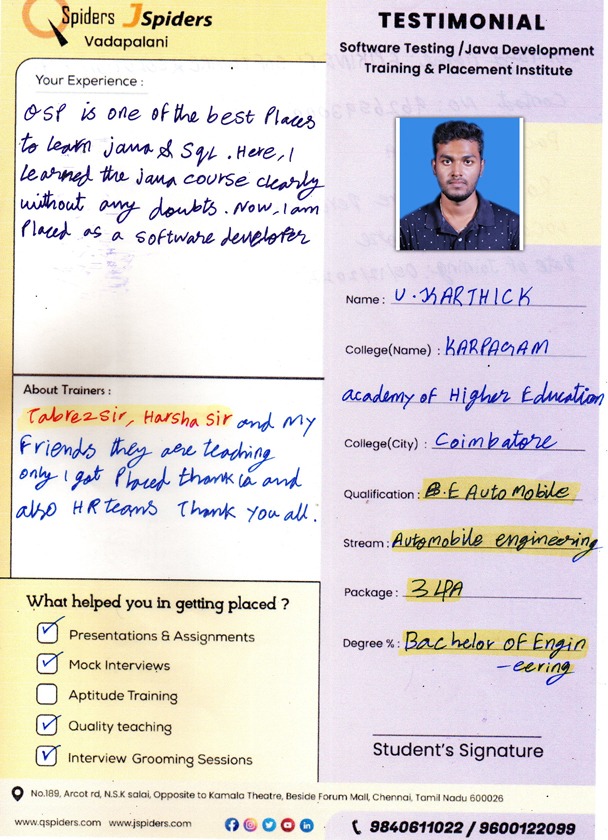 QSpiders JSpiders
Vadapalani
Your Experience :
QSP is one of the best Places
to learn java & SqL . Here, I
learned the java course clearly
without any doubts. Now, I am
Placed as a software developer
About Trainers :
Tabrez Sir, Harsha Sir and My
Friends they are teaching
only I got Placed thank u and
also HR teams Thank you all.
What helped you in getting placed ?
Presentations & Assignments
Mock Interviews
Aptitude Training
Quality teaching
Interview Grooming Sessions
TESTIMONIAL
Software Testing /Java Development
Training & Placement Institute
Name : U. KARTHICK
College(Name) : KARPAGAM
academy of Higher Education
College(City) : Coimbatore
Qualification : B.E Auto Mobile
Stream : Automobile engineering
Package : 3 LPA
Degree % : Bachelor of Engin
-eering
Student's Signature
No.189, Arcot rd, N.S.K salai, Opposite to Kamala Theatre, Beside Forum Mall, Chennai, Tamil Nadu 600026
www.qspiders.com www.jspiders.com
9840611022 / 9600122099